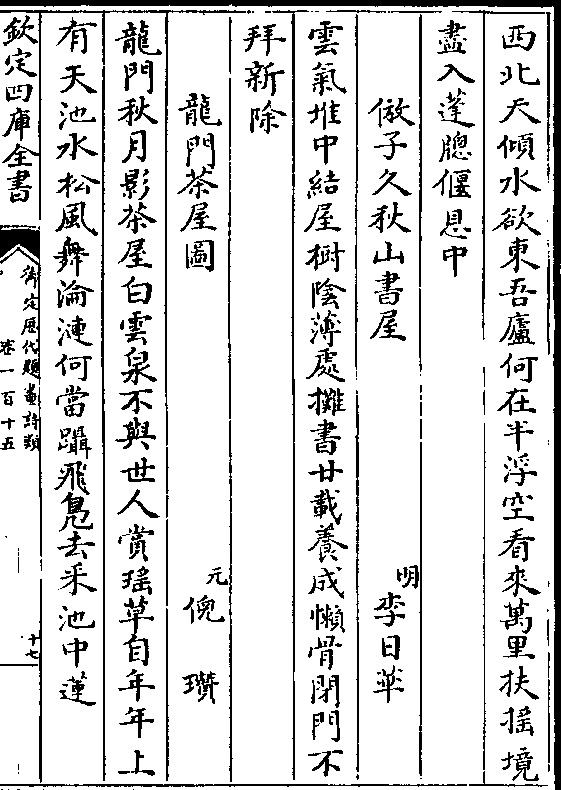 西北天傾水欲東吾廬何在半浮空看來萬里扶揺境
盡入蓬牕偃息中
倣子久秋山書屋 明 李日華
雲氣堆中結屋樹陰薄處攤書廿載養成懶骨閉門不
拜新除
龍門茶屋圖 元 倪瓚
龍門秋月影茶屋白雲泉不與世人賞瑶草自年年上
有天池水松風舞淪漣何當躡飛鳬去采池中蓮
欽定四庫全書
御定歴代題畫詩類
卷一百十五
十七